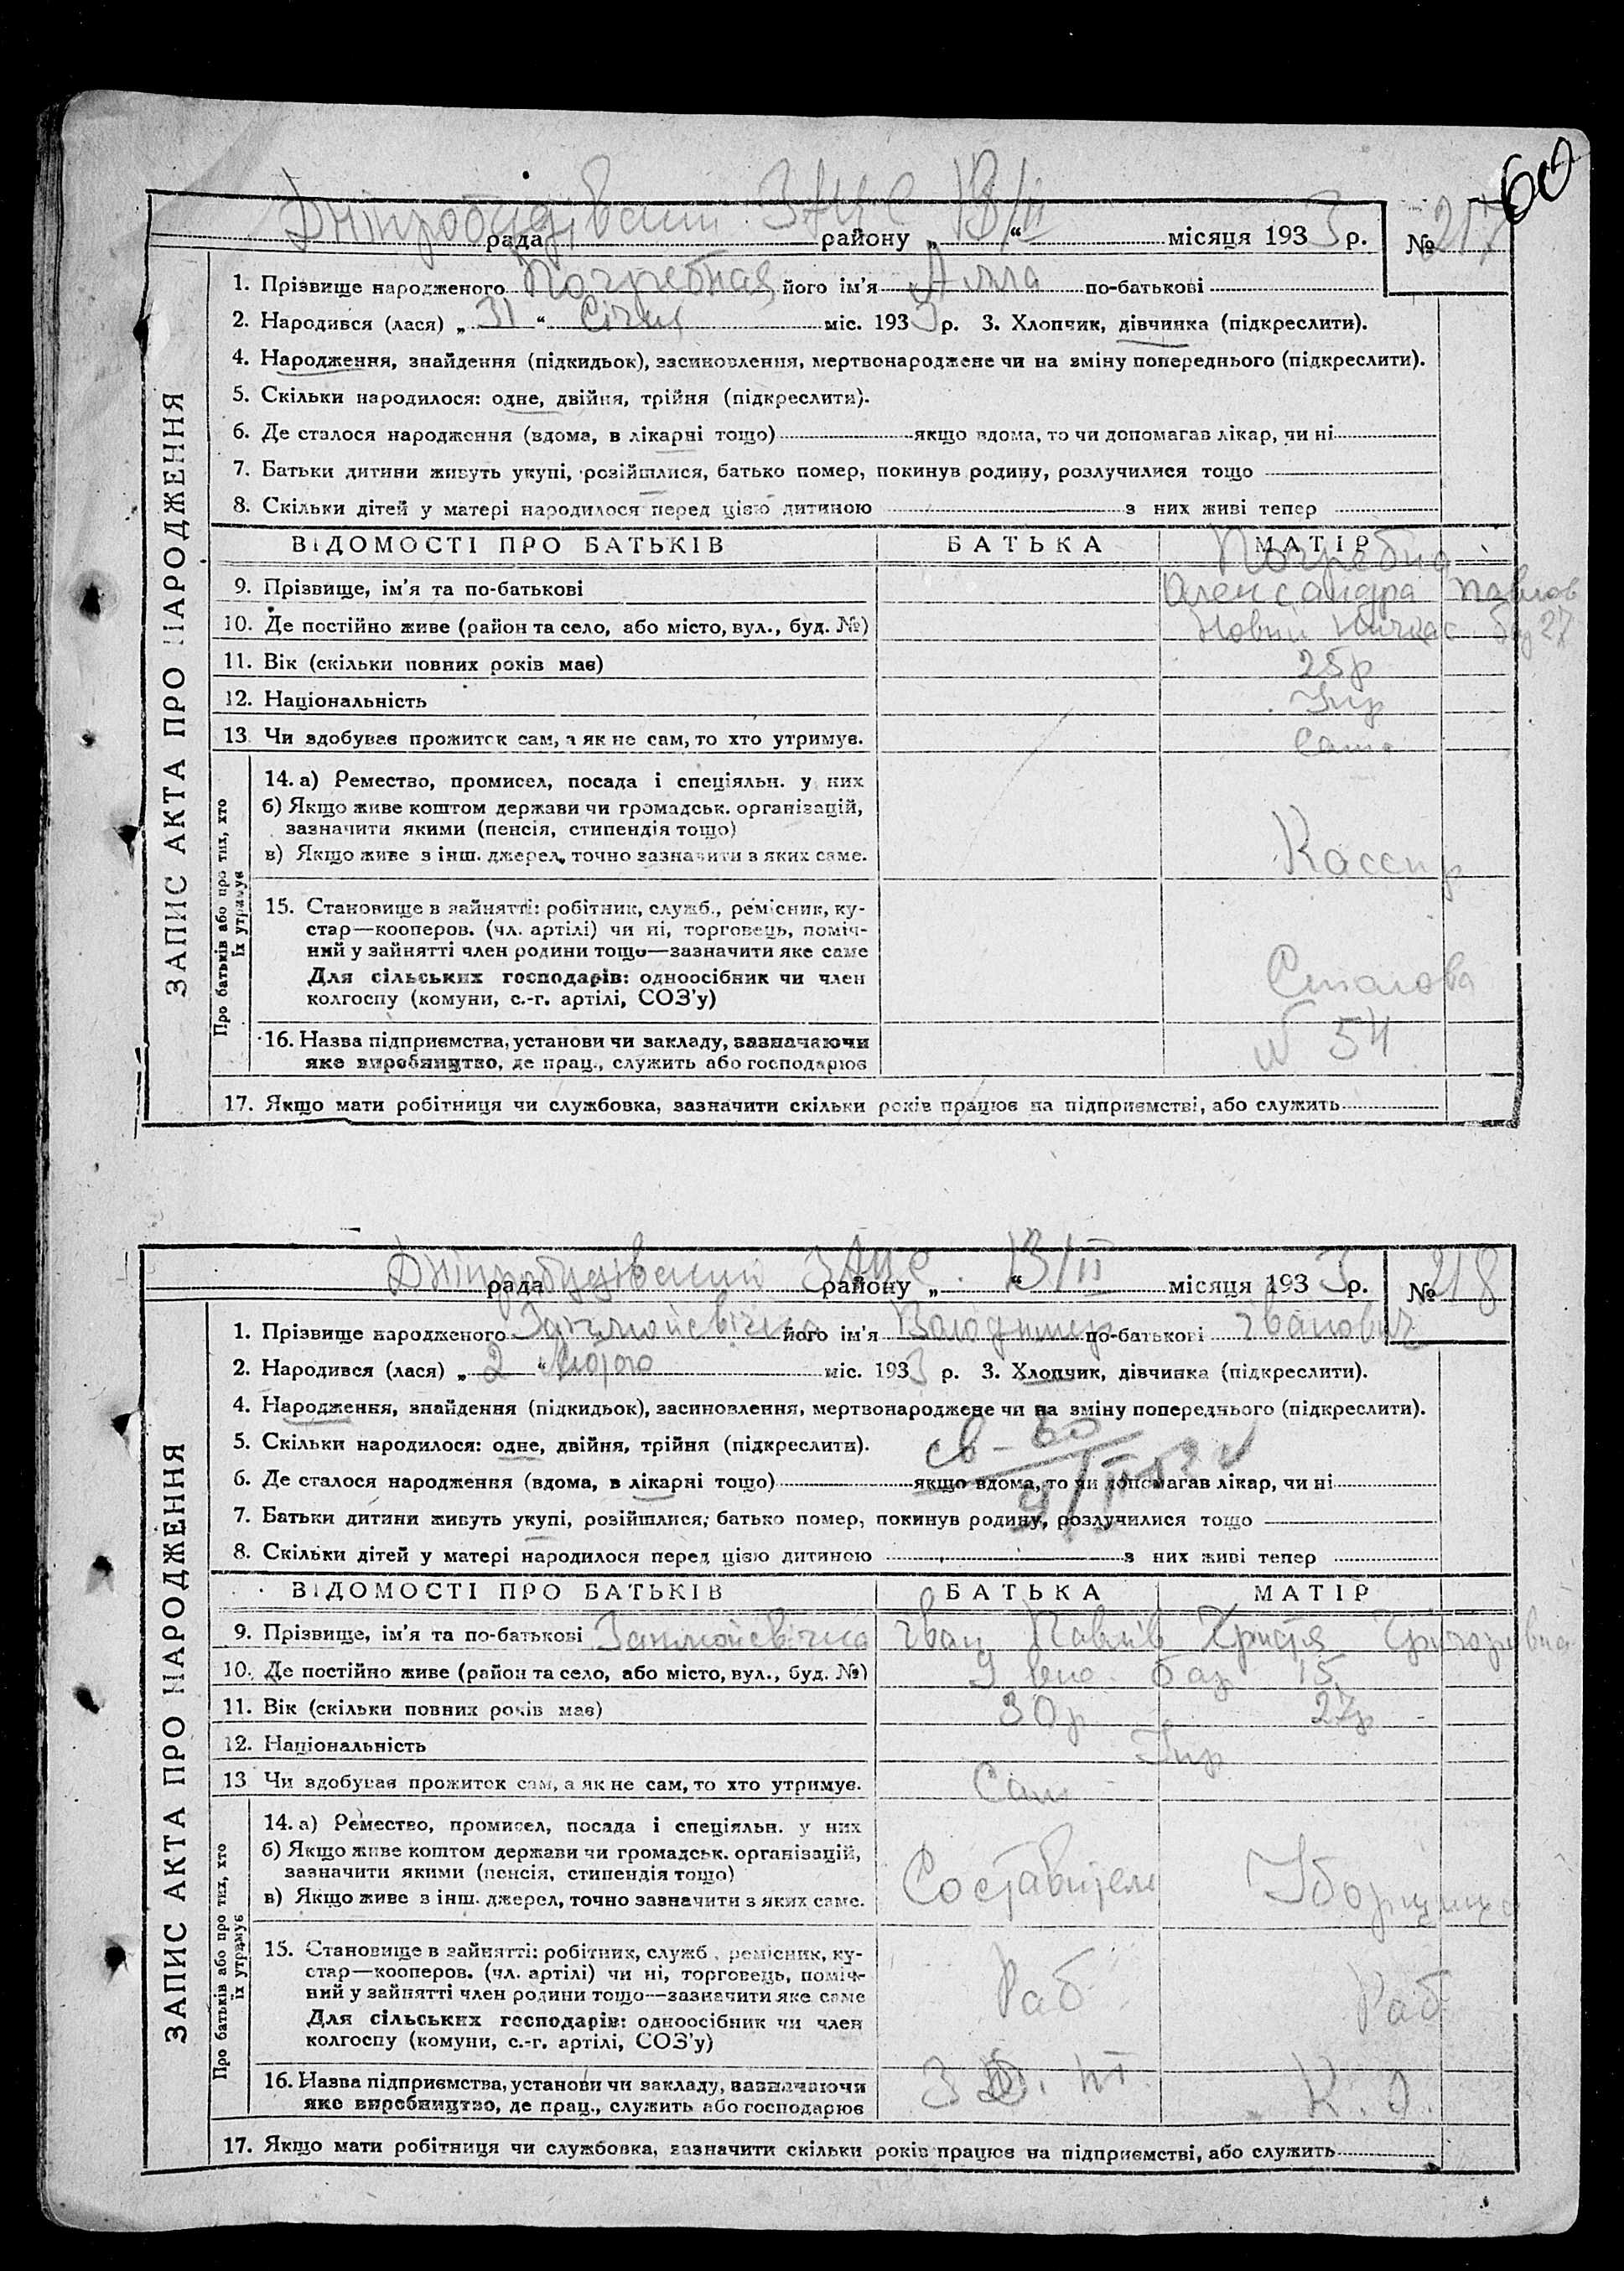 60
Дніпробудівський ЗАГС 13/II
рада району „ “ місяця 1933 р. № 217
1. Прізвище народженого Погребная його ім'я Алла по-батькові
2. Народився (лася) „ 31 “ Січня міс. 1933 р. 3. Хлопчик, дівчинка (підкреслити).
4. Народження, знайдення (підкидьок), засиновлення, мертвонароджене чи на зміну попереднього (підкреслити).
5. Скільки народилося: одне, двійня, трійня (підкреслити).
6. Де сталося народження (вдома, в лікарні тощо) якщо вдома, то чи допомагав лікар, чи ні
7. Батьки дитини живуть укупі, розійшлися, батько помер, покинув родину, розлучилися тощо
8. Скільки дітей у матері народилося перед цією дитиною з них живі тепер
ЗАПИС АКТА ПРО НАРОДЖЕННЯ
ВІДОМОСТІ ПРО БАТЬКІВ БАТЬКА МАТІР
Погребна
9. Прізвище, ім'я та по-батькові Александра Павлов
10. Де постійно живе (район та село, або місто, вул., буд. №) Новий Кичкас 27
11. Вік (скільки повних років має) 25р
12. Національність Укр
13. Чи здобуває прожиток сам, а як не сам, то хто утримує. Сама
Про батьків або про тих, хто їх утримує
14. а) Ремество, промисел, посада і спеціяльн. у них
б) Якщо живе коштом держави чи громадськ. організацій,
зазначити якими (пенсія, стипендія тощо)
в) Якщо живе з інш. джерел, точно зазначити з яких саме. Кассир
15. Становище в зайнятті: робітник, служб., ремісник, ку-
стар—кооперов. (чл. артілі) чи ні, торговець, поміч-
ний у зайнятті член родини тощо—зазначити яке саме
Для сільських господарів: одноосібник чи член
колгоспу (комуни, с.-г. артілі, СОЗ'у) Столова
16. Назва підприємства, установи чи закладу, зазначаючи № 54
яке виробництво, де прац., служить або господарює
17. Якщо мати робітниця чи службовка, зазначити скільки років працює на підприємстві, або служить
Дніпробудівський ЗАГС 13/II
рада району „ “ місяця 1933 р. № 218
1. Прізвище народженого його ім'я Володимир по-батькові Іванович
2. Народився (лася) „ 2 “ Лютого міс. 1933 р. 3. Хлопчик, дівчинка (підкреслити).
4. Народження, знайдення (підкидьок), засиновлення, мертвонароджене чи на зміну попереднього (підкреслити).
5. Скільки народилося: одне, двійня, трійня (підкреслити).
6. Де сталося народження (вдома, в лікарні тощо) якщо вдома, то чи допомагав лікар, чи ні
7. Батьки дитини живуть укупі, розійшлися, батько помер, покинув родину, розлучилися тощо
8. Скільки дітей у матері народилося перед цією дитиною з них живі тепер
ЗАПИС АКТА ПРО НАРОДЖЕННЯ
ВІДОМОСТІ ПРО БАТЬКІВ БАТЬКА МАТІР
9. Прізвище, ім'я та по-батькові Іван Павлів Христя Григоривна
10. Де постійно живе (район та село, або місто, вул., буд. №) 15
11. Вік (скільки повних років має) 30р 27р
12. Національність Укр
13. Чи здобуває прожиток сам, а як не сам, то хто утримує. Сам
Про батьків або про тих, хто їх утримує
14. а) Ремество, промисел, посада і спеціяльн. у них
б) Якщо живе коштом держави чи громадськ. організацій,
зазначити якими (пенсія, стипендія тощо)
в) Якщо живе з інш. джерел, точно зазначити з яких саме. Составитель Уборщица
15. Становище в зайнятті: робітник, служб., ремісник, ку-
стар—кооперов. (чл. артілі) чи ні, торговець, поміч-
ний у зайнятті член родини тощо—зазначити яке саме Раб Раб
Для сільських господарів: одноосібник чи член
колгоспу (комуни, с.-г. артілі, СОЗ'у)
16. Назва підприємства, установи чи закладу, зазначаючи
яке виробництво, де прац., служить або господарює
17. Якщо мати робітниця чи службовка, зазначити скільки років працює на підприємстві, або служить